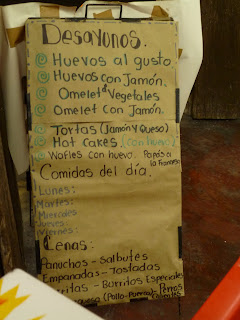 Desayunos.
Huevos al gusto
Huevos con Jamón.
Omelet d Vegetales
Omelet con Jamón.
Tortas (Jamón y Queso)
Hot Cakes (con huevo)
Wafles con huevo. Papas a la francesa
Comidas del día.
Lunes:
Martes:
Miercoles:
Jueves:
Viernes:
Cenas:
Panuchos - Salbutes
Empanadas - Tostadas
Burritos Especiales
(Pollo-Puerco) Perros